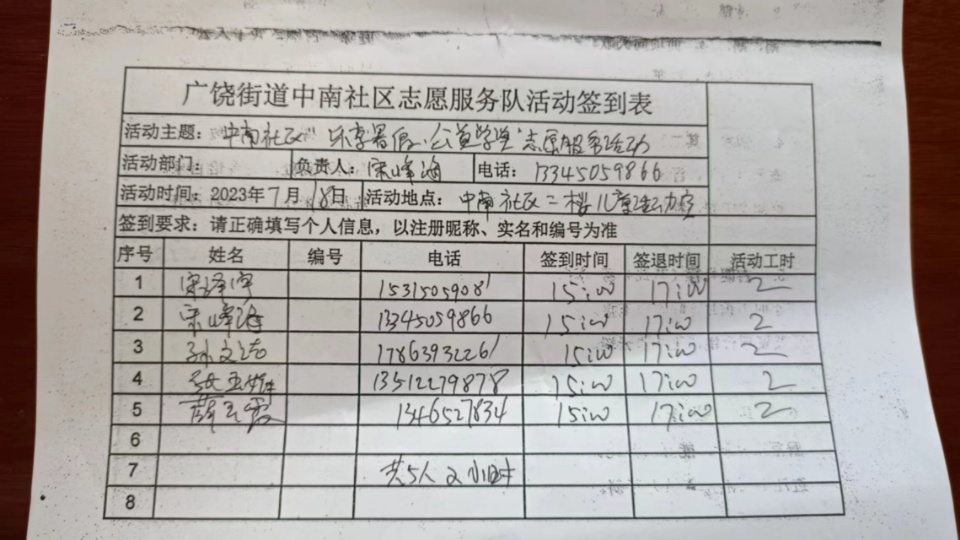 广饶街道中南社区志愿服务队活动签到表
活动主题：中南社区“乐享暑假·公益学堂”志愿服务活动
活动部门： 负责人：宋峰海 电话：13345059866
活动时间：2023年7月18日 活动地点：中南社区二楼儿童活动室
签到要求：请正确填写个人信息，以注册昵称、实名和编号为准
序号 姓名 编号 电话 签到时间 签退时间 活动工时
1 宋 15315059081 15:00 17:00 2
2 宋峰海 13345059866 15:00 17:00 2
3 孙文 17863932261 15:00 17:00 2
4 张玉 13512279878 15:00 17:00 2
5 薛 1346527834 15:00 17:00 2
6
7 共5人 2小时
8